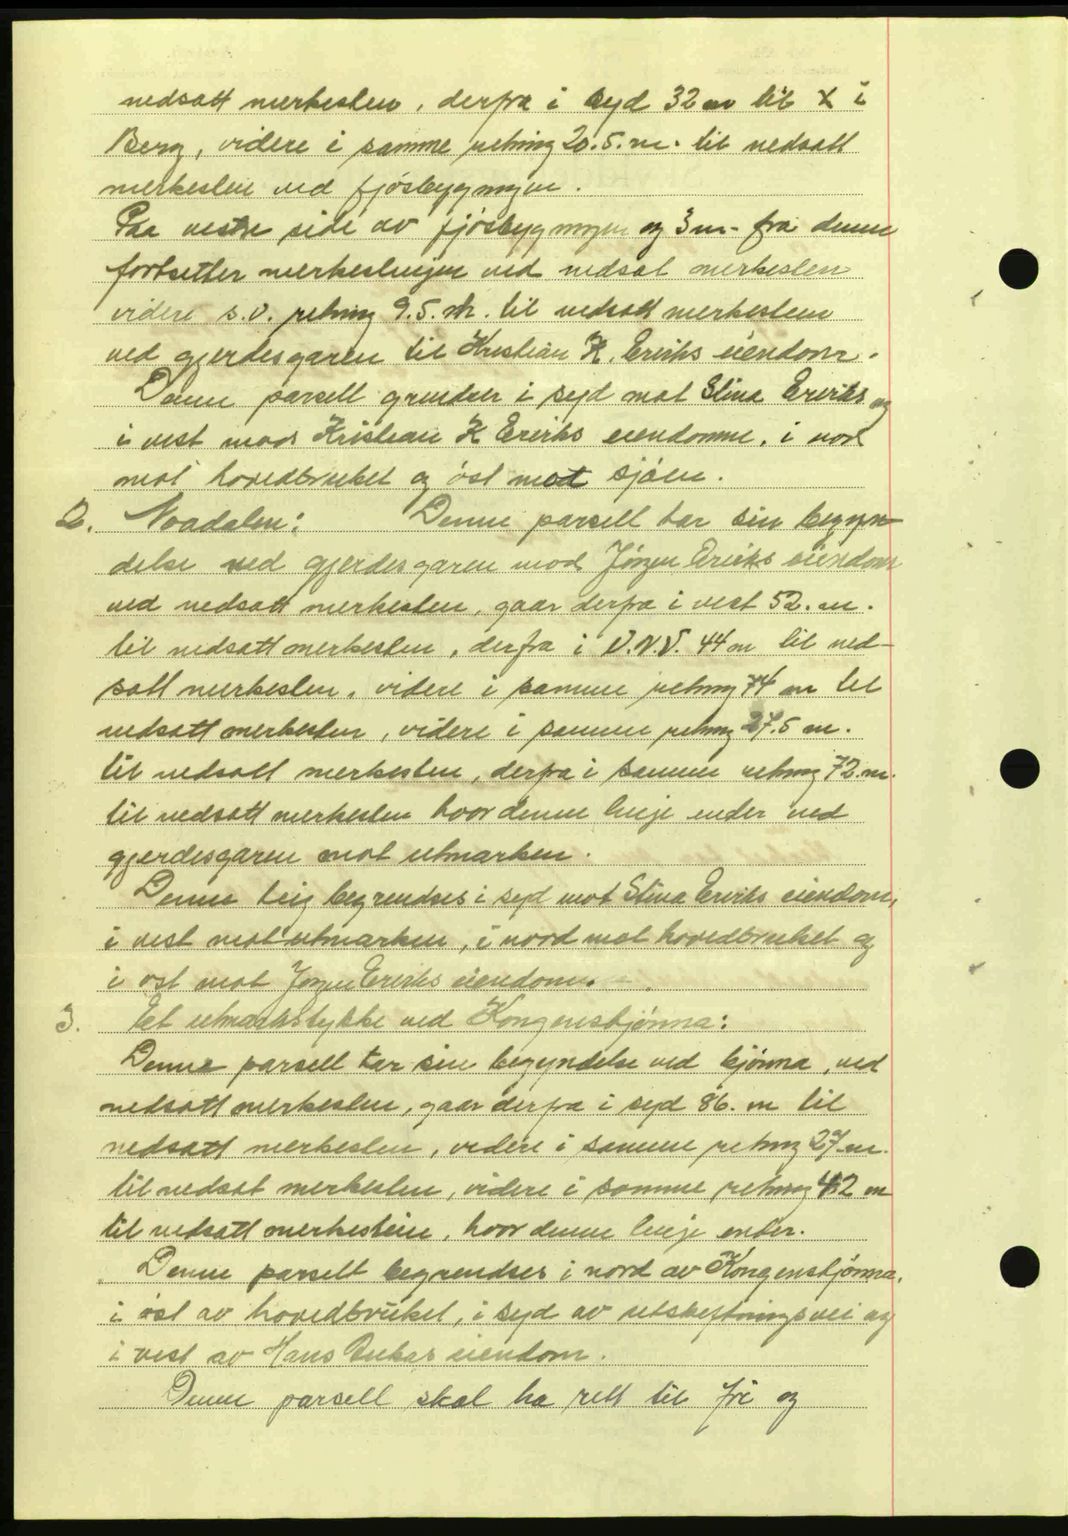 nedsatt merkesten, derfra i syd 32 m til X i
Berg, videre i samme retning 20.5. m. til nedsatt
merkesten ved fjösbygningen.
Paa vestre side av fjösbygningen og 3 m. fra denne
fortsetter merkeslinjen ved nedsat merkesten
videre s.v. retning 9.5. m. til nedsatt merkesten
ved gjerdesgaren til Kristian K. Eriks eiendom.
Denne parsell grendser i syd mot Stina Eriks og
i vest mod Kristian K Eriks eiendomme, i nord
mot hovedbruket og öst mot sjöen.
2. Noadalen: Denne parsell tar sin begyn-
delse ved gjerdesgaren mod Jörgen Eriks eiendom
ved nedsatt merkesten, gaar derfra i vest 52. m.
til nedsatt merkesten, derfra i V.N.V. 44 m til ned-
satt merkesten, videre i samme retning 74 m til
nedsatt merkesten, videre i samme retning 27.5 m.
til nedsatt merkesten, derfra i samme retning 72. m.
til nedsatt merkesten hvor denne linje ender ved
gjerdesgaren mot utmarken.
Denne teig begrendses i syd mot Stina Eriks eiendom,
i vest mot utmarken, i nord mot hovedbruket og
i öst mot Jörgen Eriks eiendom.
3. Et utmarkstykke ved Kongenstjönna:
Denne parsell tar sin begyndelse ved tjönna, ved
nedsatt merkesten, gaar derfra i syd 86. m til
nedsatt merkesten, videre i samme retning 27 m.
til nedsat merkesten, videre i samme retning 42 m
til nedsatt merkestein, hvor denne linje ender.
Denne parsell begrendses i nord av Kongenstjönna,
i öst av hovedbruket, i syd av utskeftningsvei og
i vest av Hans eiendom.
Denne parsell skal ha rett til fri og